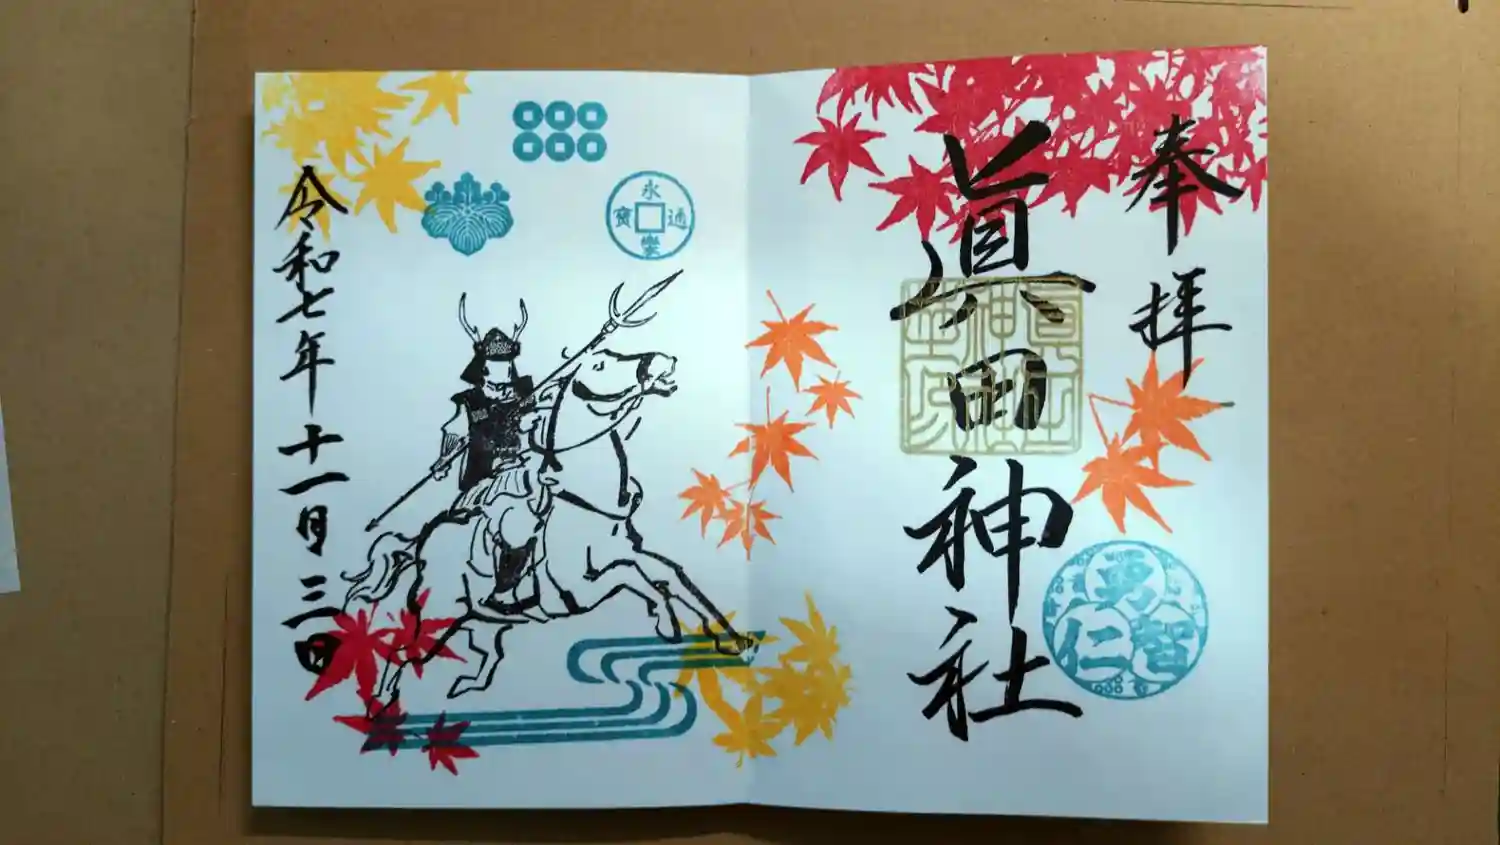 奉拝
眞田神社
智仁勇
永樂通寳
令和七年十一月三日